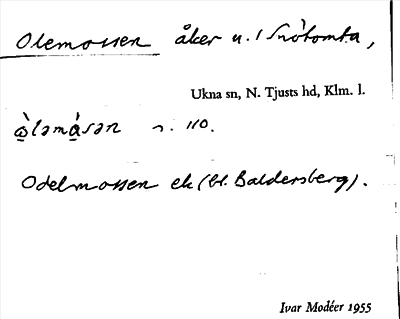 Olemossen åker u. 1 Snötomta,
Ukna sn, N. Tjusts hd, Klm. l.
òləmå̀sən n. 110.
Odelmossen ek (bl. Baldersberg).
Ivar Modéer 1955